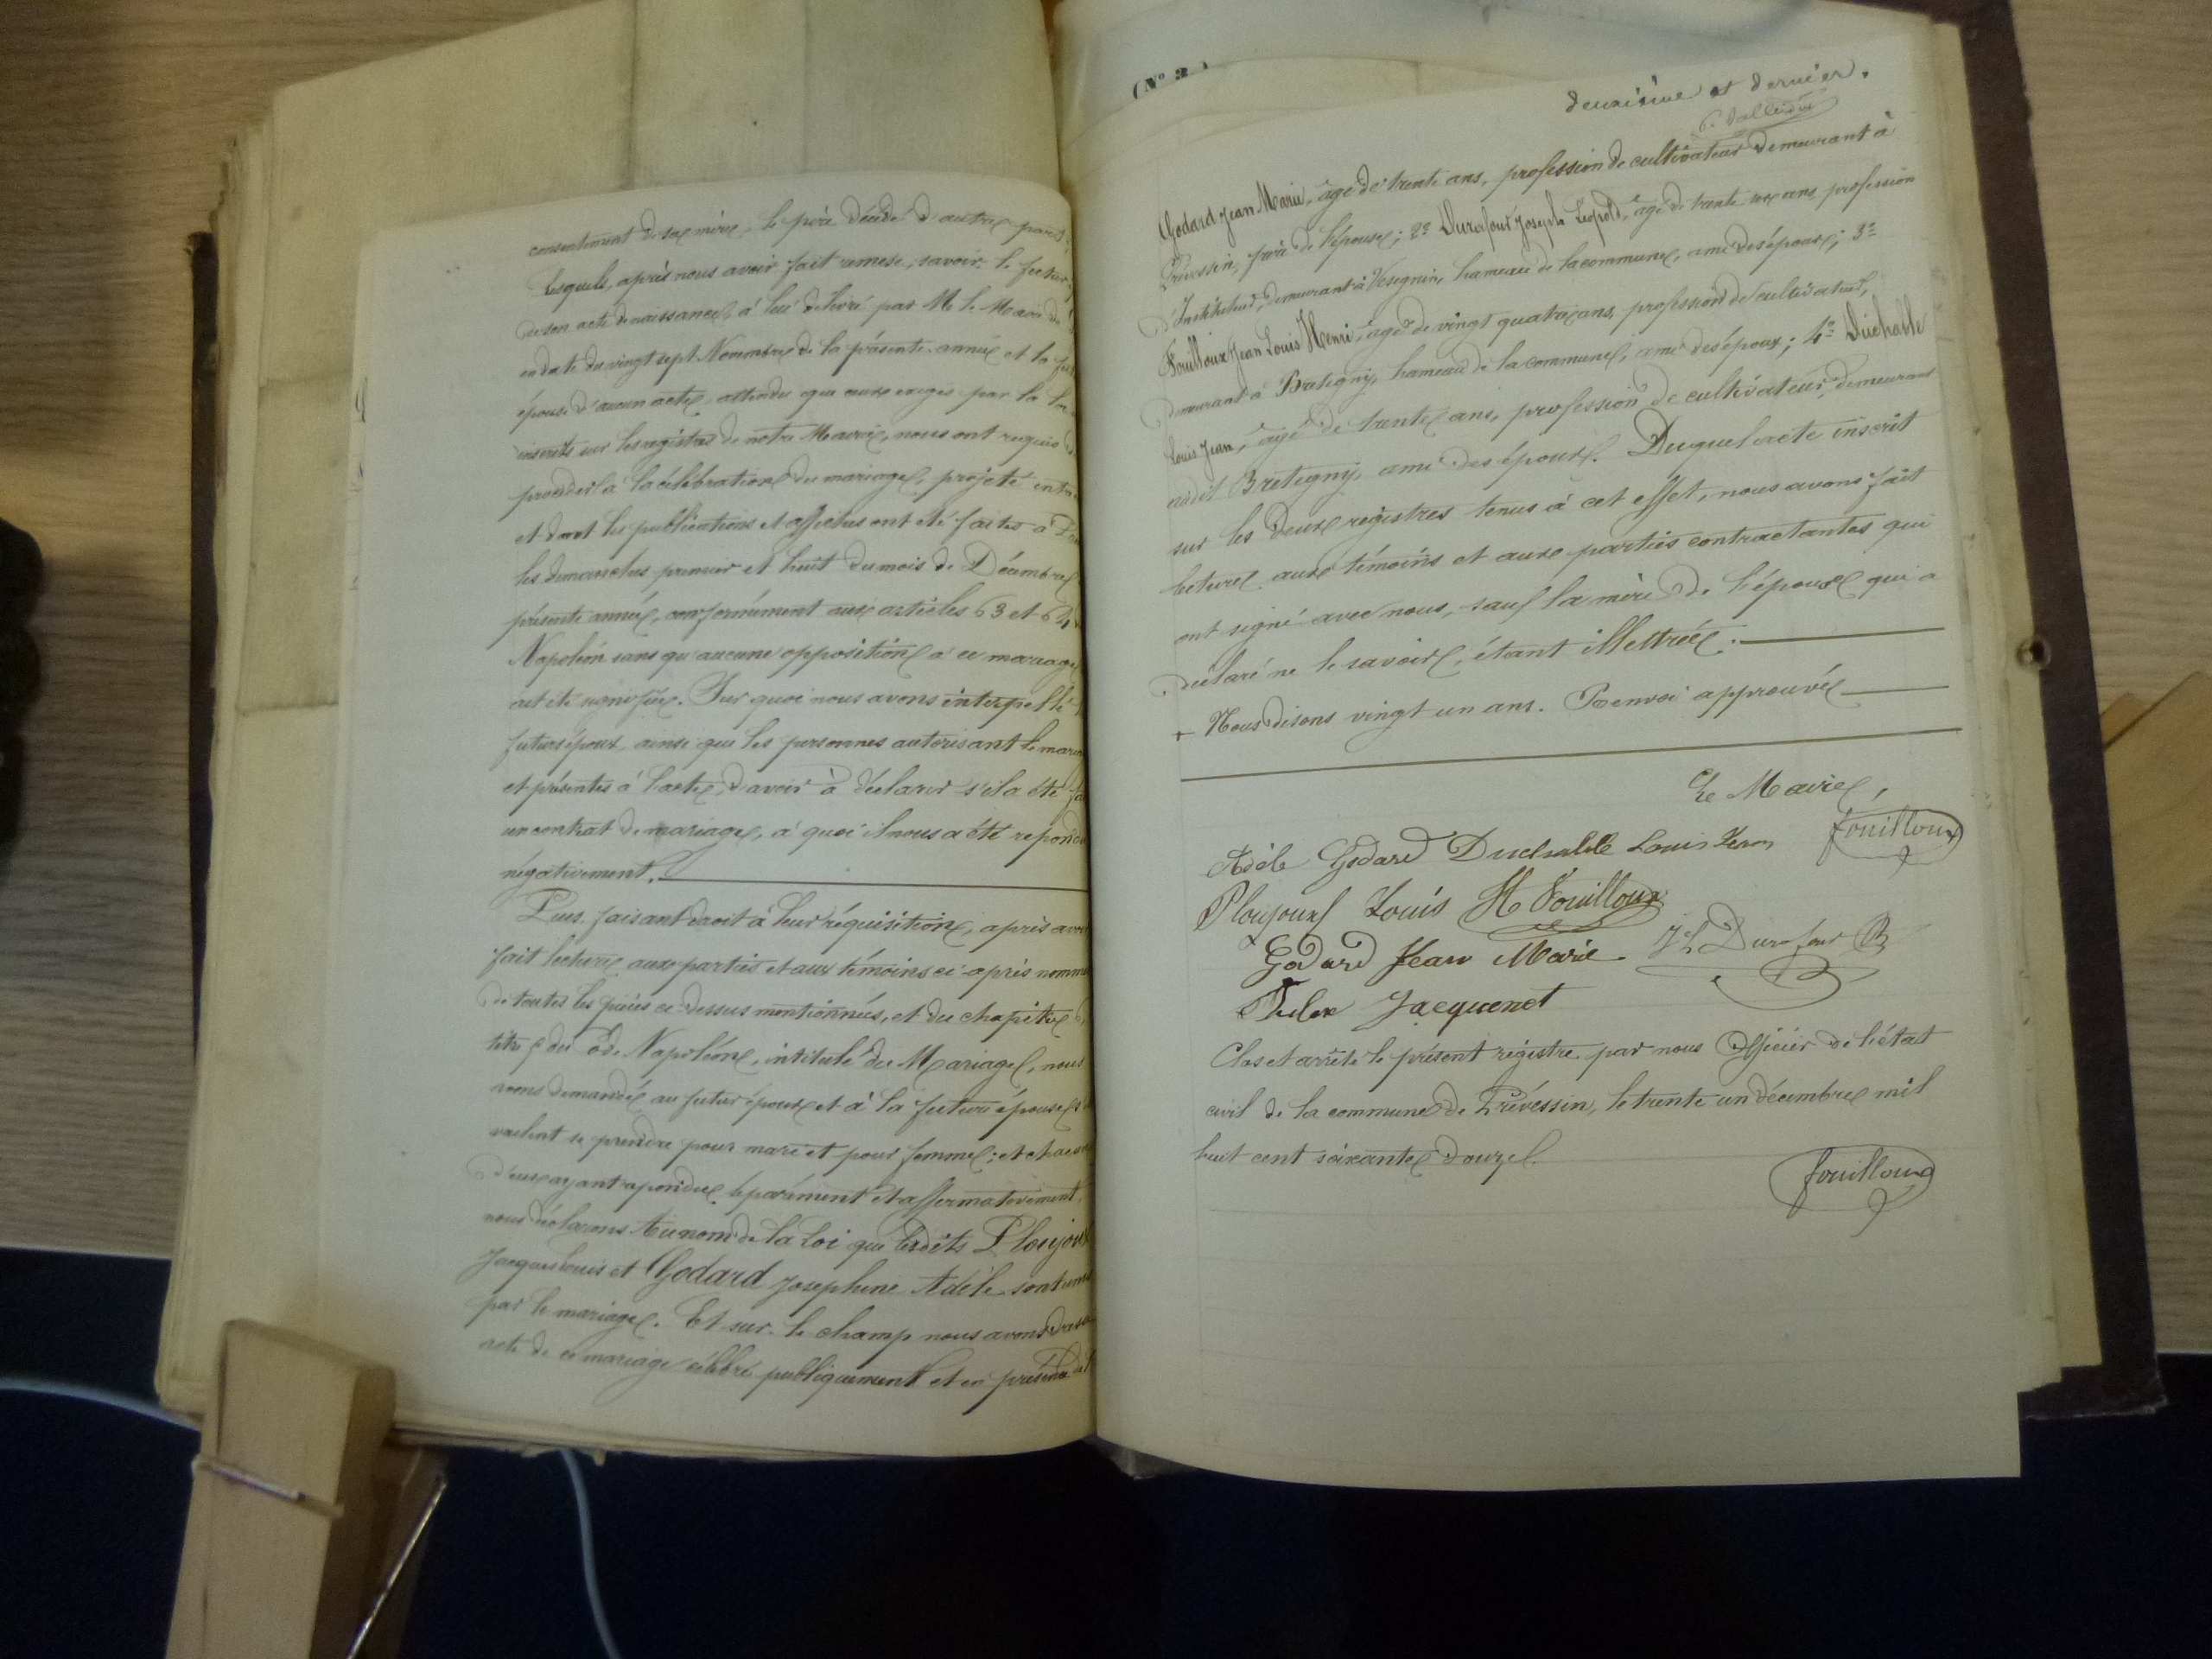 consentement de sa mère, le père décédé d'autre part;
Lesquels, après nous avoir fait remise, savoir: le futur
de son acte de naissance, à lui délivré par M. le Maire de
en date du vingt sept Novembre de la présente année et la
épouse d'aucun acte, attendu que ceux exigés par la
inscrits sur les registres de notre Mairie, nous ont requis
procéder à la célébration du mariage, projeté
et dont les publications et affiches ont été faites à
les dimanches premier et huit du mois de Décembre
présente année, conformément aux articles 63 et 64
Napoléon sans qu'aucune opposition à ce mariage
ait été signifiée. Sur quoi nous avons interpellé
futurs époux, ainsi que les personnes autorisant le
et présentes à l'acte, d'avoir à déclarer s'il a été
un contrat de mariage, à quoi il nous a été
négativement.
Puis, faisant droit à leur réquisition, après
fait lecture aux parties et aux témoins ci-après
de toutes les pièces ci-dessus mentionnées, et du chapitre 6
titre 5 du Code Napoléon, intitulé du Mariage, nous
avons demandé au futur époux et à la future épouse s'
veulent se prendre pour mari et pour femme; et
d'eux ayant répondu, séparément et affirmativement,
nous déclarons Au nom de la Loi que lesdits Ploujoux
Jacques Louis et Godard Josephine Adèle sont unis
par le mariage. Et sur le champ nous avons dressé
acte de ce mariage célébré publiquement et en présence de 1°
(N° 3.
deuxième et dernier.
Godard Jean Marie, âgé de trente ans, profession de cultivateur demeurant à
Prévessin, frère de l'épouse; 2° Durafour Joseph Léopold, âgé de trente ans, profession
d'Instituteur, demeurant à Vésegnin, hameau de la commune, ami des époux; 3°
Fouilloux Jean Louis Henri, âgé de vingt quatre ans, profession de cultivateur,
demeurant à Bretigny, hameau de la commune, ami des époux; 4° Duchable
Louis Jean, âgé de trente ans, profession de cultivateur, demeurant
audit Bretigny, ami des époux. Duquel acte inscrit
sur les deux registres tenus à cet effet, nous avons fait
lecture aux témoins et aux parties contractantes qui
ont signé avec nous, sauf la mère de l'époux qui a
déclaré ne le savoir, étant illettrée.
+ Nous disons vingt un ans. Renvoi approuvé
Le Maire,
Adèle Godard Duchable Louis Jean Fouilloux
Ploujoux Louis H Fouilloux
Godard Jean Marie JL Durafour
Jacquenet
Clos et arrêté le présent régistre par nous Officier de l'état
civil de la commune de Prévessin, le trente un décembre mil
huit cent soixante douze.
Fouilloux